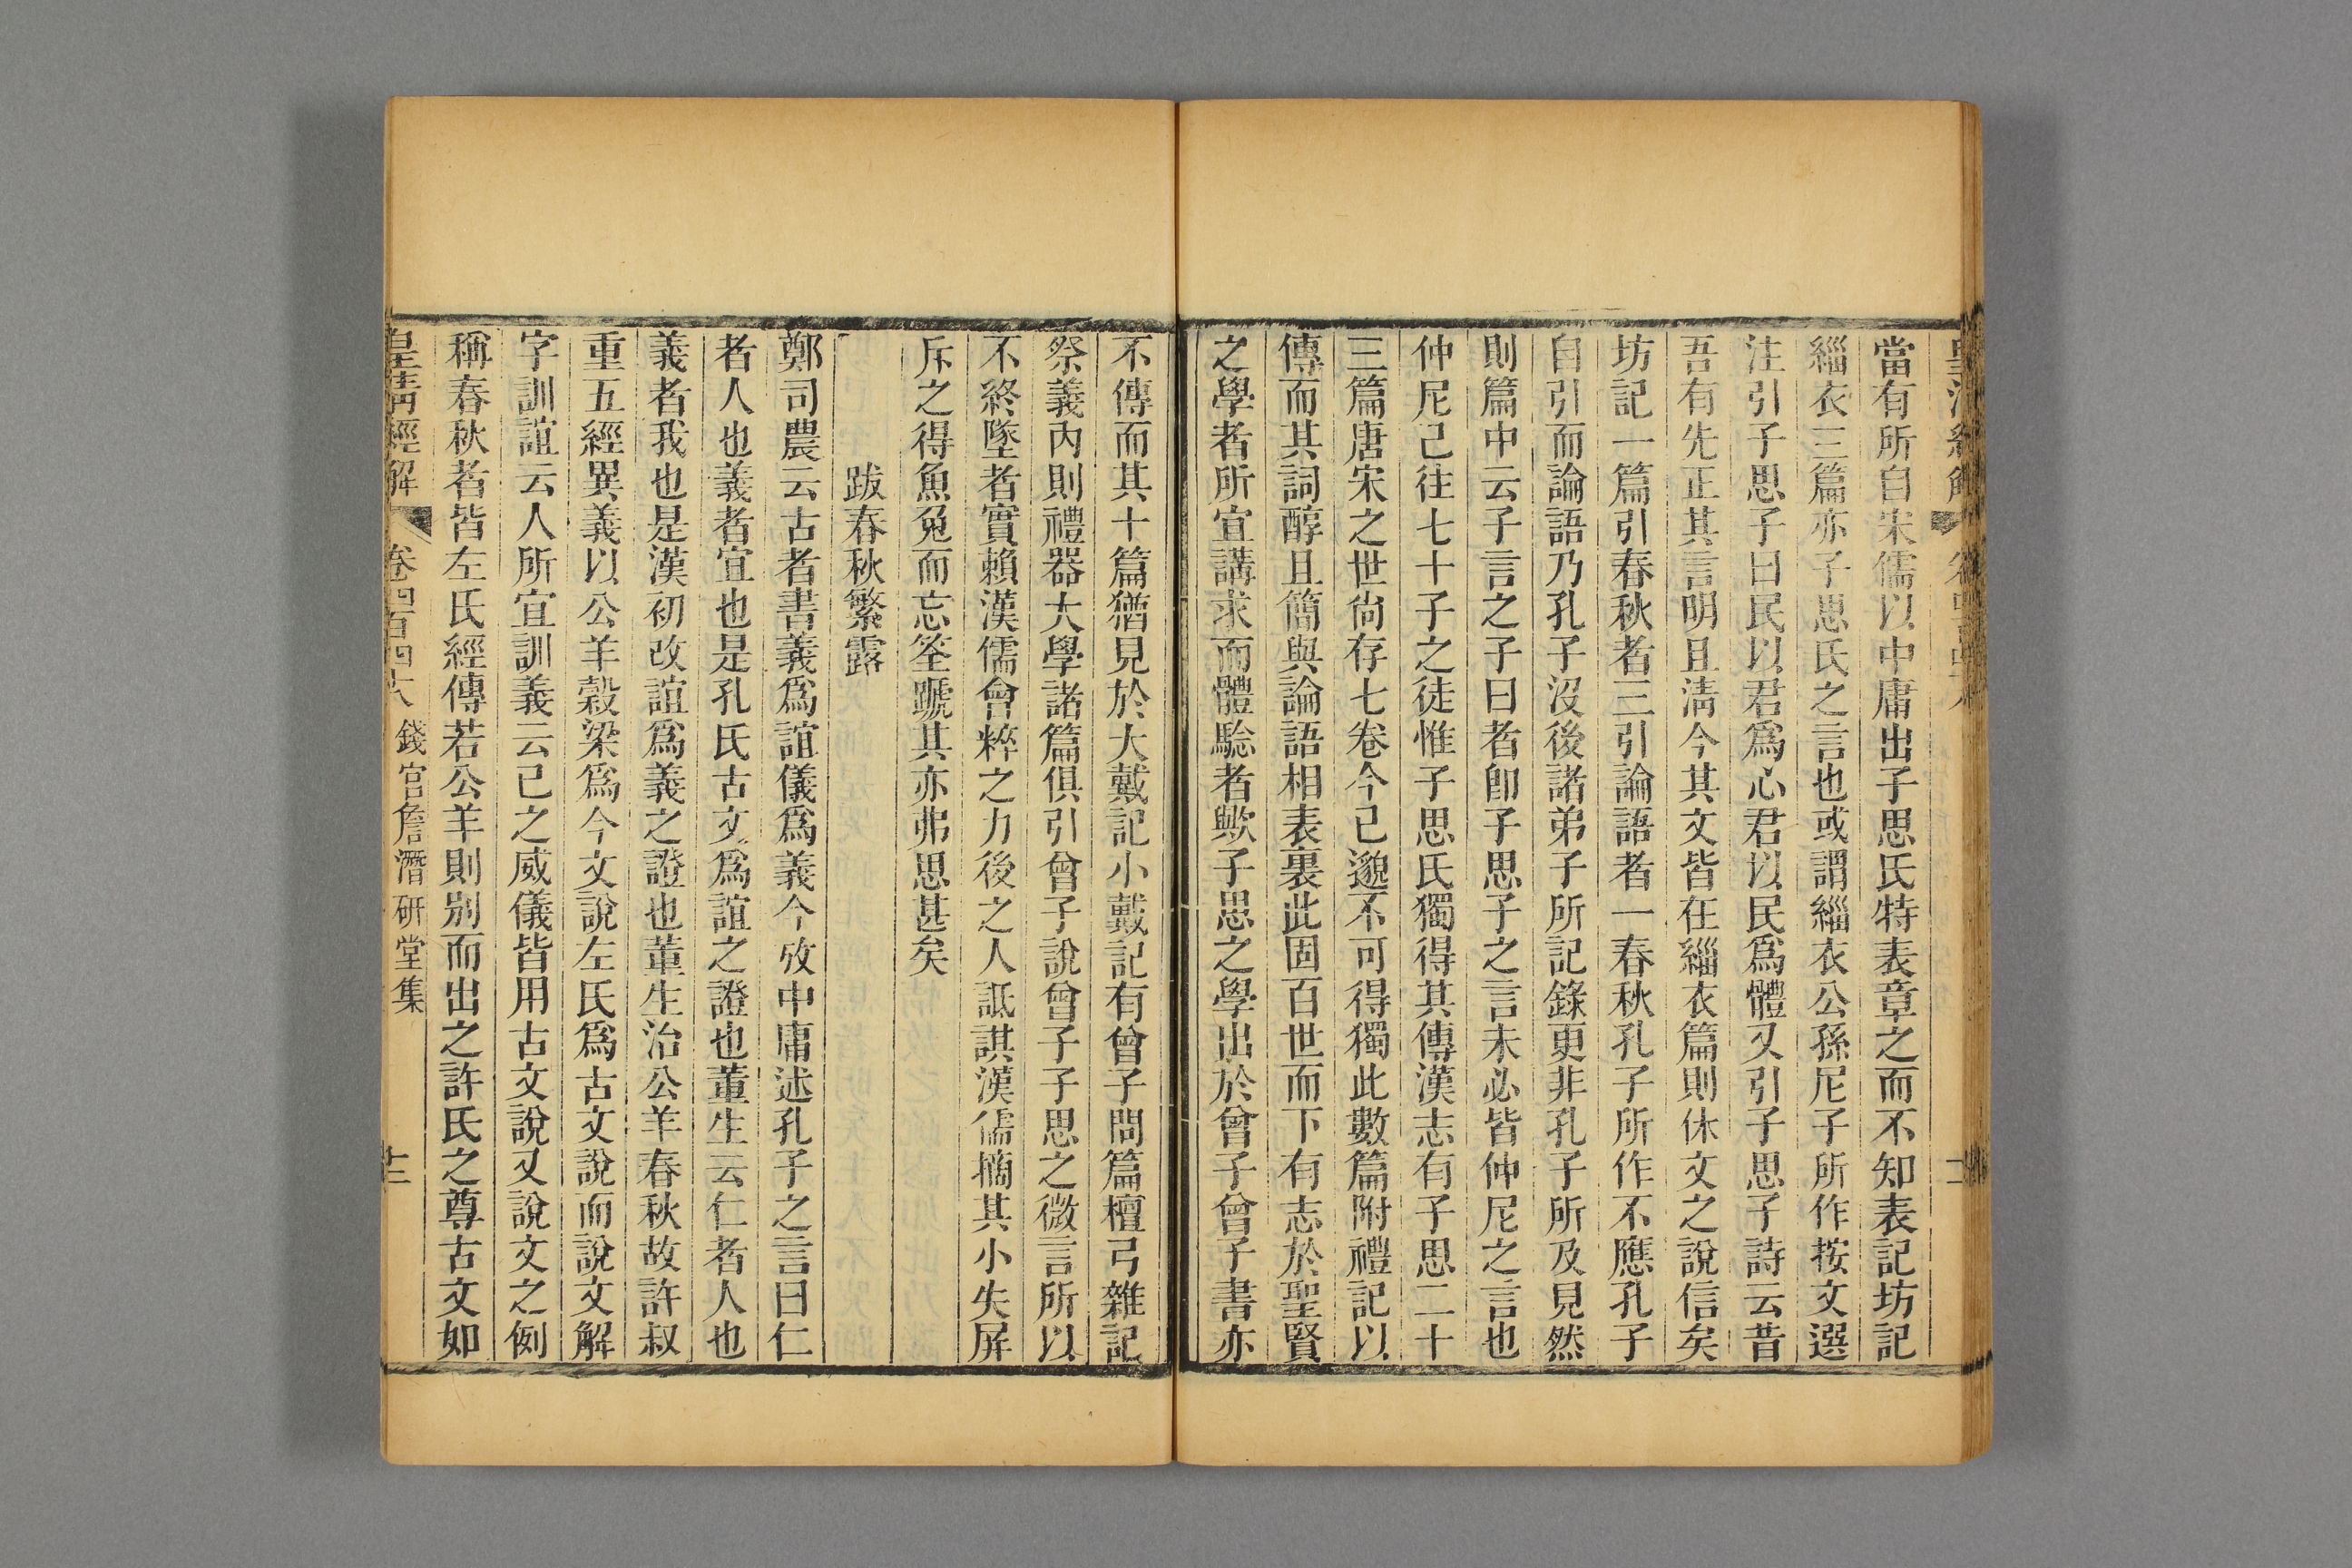 當有所自宋儒以中庸出子思氏特表章之而不知表記坊記
緇衣三篇亦子思氏之言也或謂緇衣公孫尼子所作按文選
注引子思子曰民以君爲心君以民爲體又引子思子詩云昔
吾有先正其言明且淸今其文皆在緇衣篇則休文之說信矣
坊記一篇引春秋者三引論語者一春秋孔子所作不應孔子
自引而論語乃孔子沒後諸弟子所記錄更非孔子所及見然
則篇中云子言之子曰者卽子思子之言未必皆仲尼之言也
仲尼已往七十子之徒惟子思氏獨得其傳漢志有子思二十
三篇唐宋之世尙存七卷今已邈不可得獨此數篇附禮記以
傳而其詞醇且簡與論語相表裏此固百世而下有志於聖賢
之學者所宜講求而體驗者歟子思之學出於曾子曾子書亦
不傳而其十篇猶見於大戴記小戴記有曾子問篇檀弓雜記
祭義內則禮器大學諸篇俱引曾子說曾子子思之微言所以
不終墜者實賴漢儒會粹之力後之人詆諆漢儒摘其小失屏
斥之得魚兔而忘筌蹏其亦弗思甚矣
跋春秋繁露
鄭司農云古者書義爲誼儀爲義今攷中庸述孔子之言曰仁
者人也義者宜也是孔氏古文爲誼之證也董生云仁者人也
義者我也是漢初改誼爲義之證也董生治公羊春秋故許叔
重五經異義以公羊穀梁爲今文說左氏爲古文說而說文解
字訓誼云人所宜訓義云己之威儀皆用古文說又說文之例
稱春秋者皆左氏經傳若公羊則別而出之許氏之尊古文如
皇淸經解 卷四百四十八 錢宮詹潛研堂集 十三